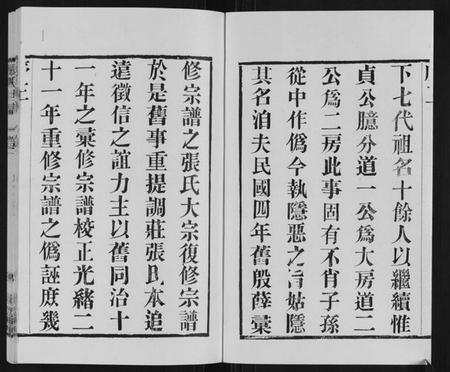 下七代祖名十餘人以繼續惟
貞公臆分道一公為大房道二
公為二房此事固有不肖子孫
從中作僞今執隱惡之旨姑隱
其名洎夫民國四年舊殷薛藁
修宗譜之張氏大宗復修宗譜
於是舊事重提調莊張氏本追
遠徵信之誼力主以舊同治十
一年之藁修宗譜校正光緒二
十一年重修宗譜之僞誣庶幾